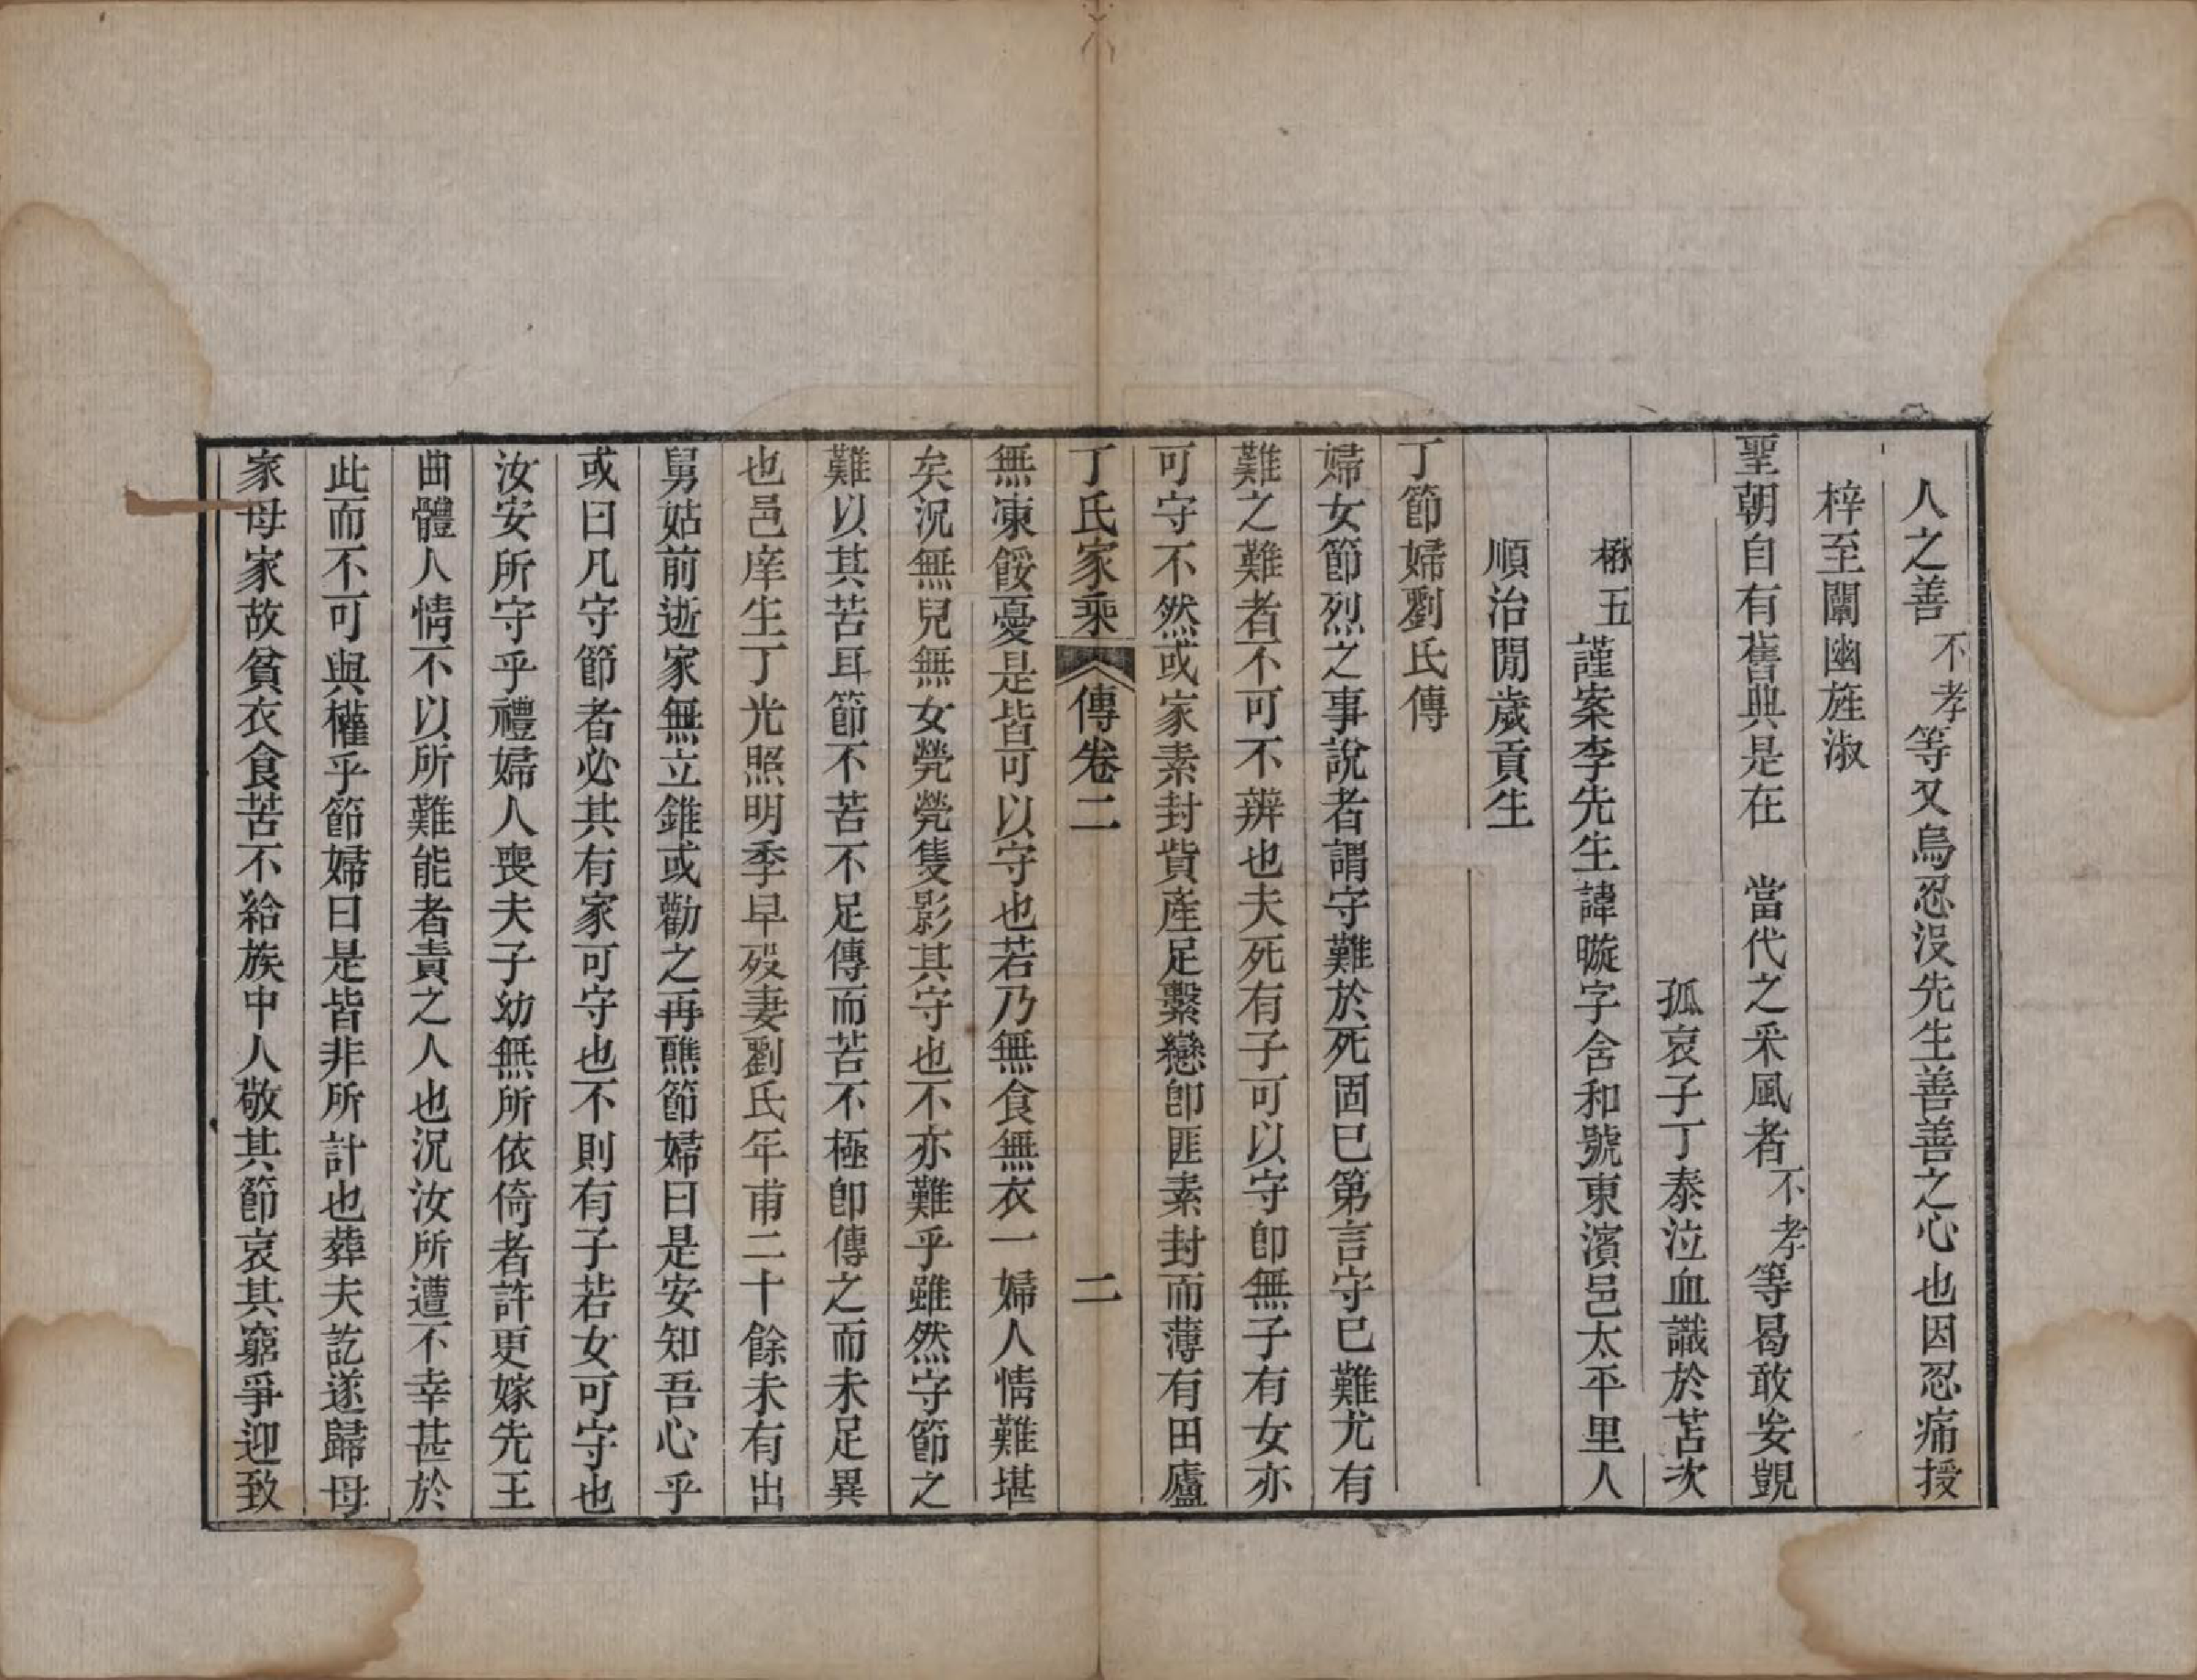 人之善不孝等又烏忍沒先生善善之心也因忍痛授
梓至闡幽旌淑
聖朝自有舊典是在　當代之采風者不孝等曷敢妄覬
孤哀子丁泰泣血識於苫次
楙五謹案李先生諱暶字含和號東濱邑太平里人
順治閒歲貢生
丁節婦劉氏傳
婦女節烈之事說者謂守難於死固已第言守已難尤有
難之難者不可不辨也夫死有子可以守卽無子有女亦
可守不然或家素封貲產足繫戀卽匪素封而薄有田廬
丁氏家乘　傳卷二　二
無凍餒憂是皆可以守也若乃無食無衣一婦人情難堪
矣況無兒無女煢煢隻影其守也不亦難乎雖然守節之
難以其苦耳節不苦不足傳而苦不極卽傳之而未足異
也邑庠生丁光照明季早歿妻劉氏年甫二十餘未有出
舅姑前逝家無立錐或勸之再醮節婦曰是安知吾心乎
或曰凡守節者必其有家可守也不則有子若女可守也
汝安所守乎禮婦人喪夫子幼無所依倚者許更嫁先王
曲體人情不以所難能者責之人也況汝所遭不幸甚於
此而不可與權乎節婦曰是皆非所計也葬夫訖遂歸母
家母家故貧衣食苦不給族中人敬其節哀其窮爭迎致